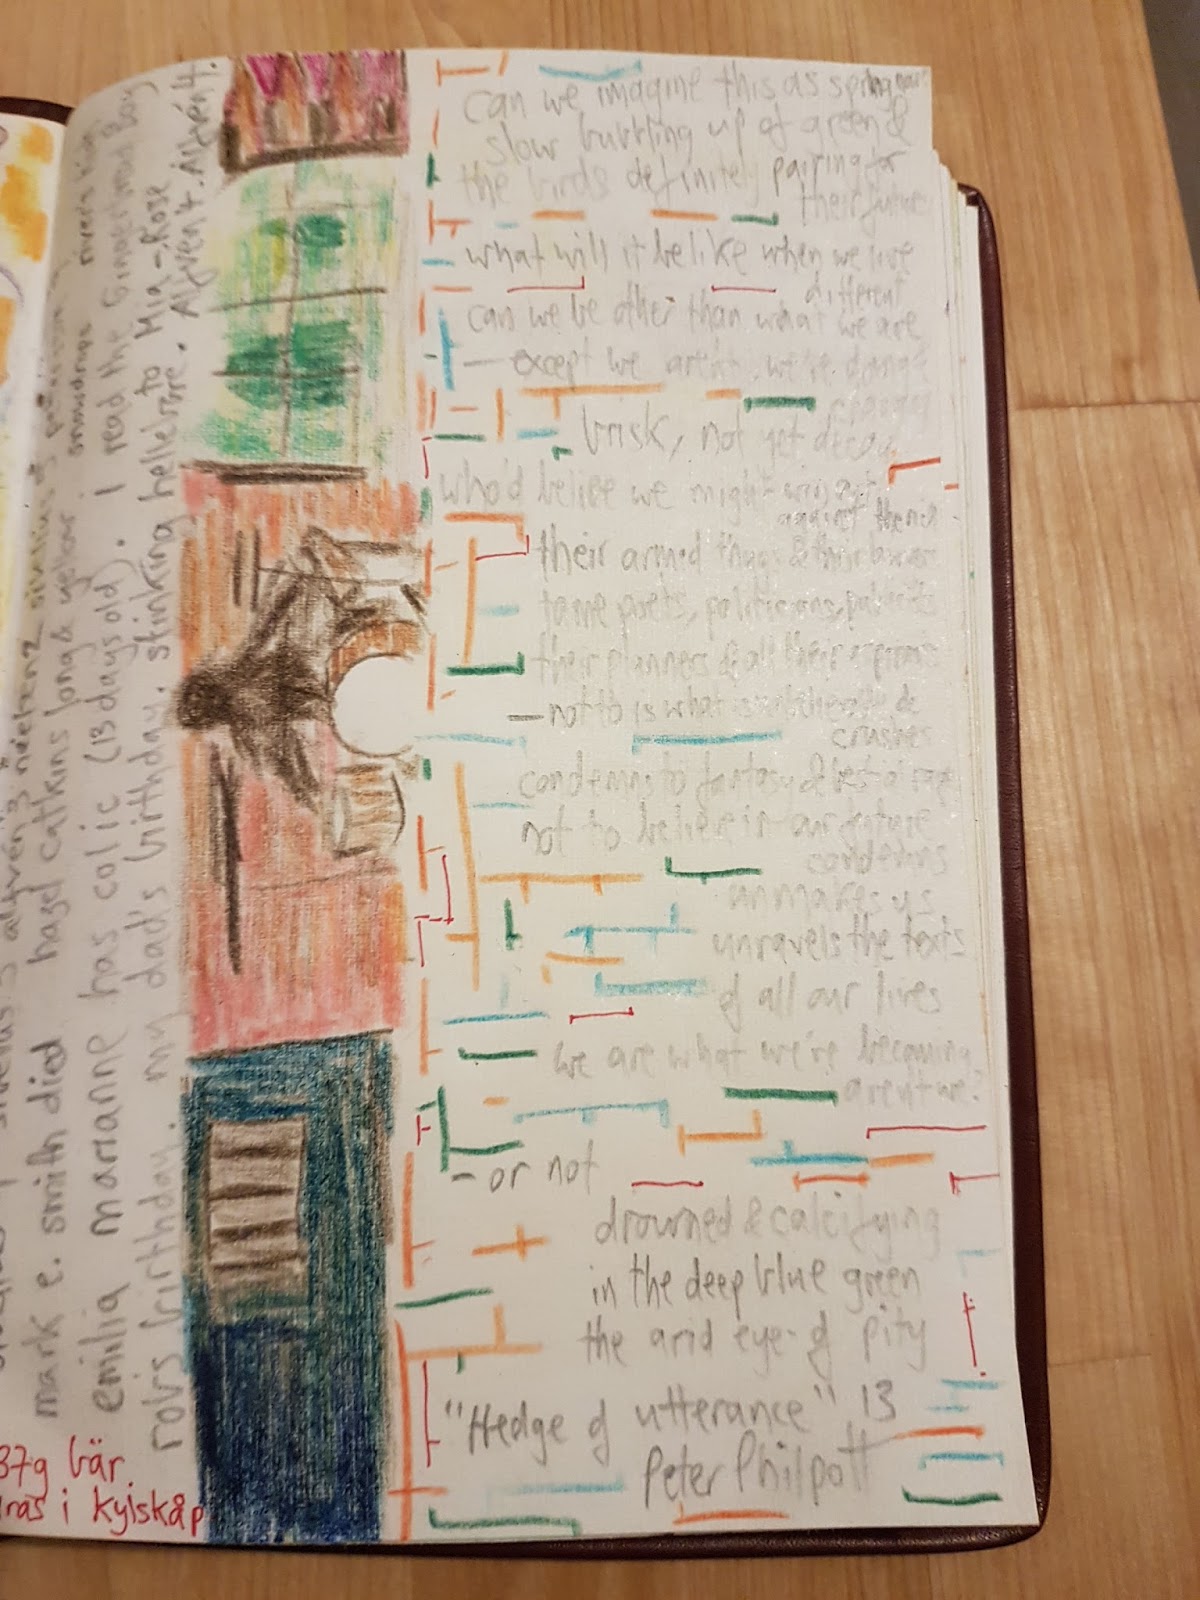 can we imagine this as spring
slow burbling up of green &
the birds definitely pairing for
their future
what will it be like when we live
different
can we be other than what we are
— except we aren't, we're
brisk, not yet decay
who'd belive we might
against them
their armed thugs & their
tame poets, politicians,
their planners & all their
— not to is what
crushes
condemns to fantasy &
not to believe in our future
condemns
unmakes us
unravels the texts
of all our lives
we are what we're becoming
aren't we?
- or not
drowned & calcifying
in the deep blue green
the arid eye of pity
"Hedge of utterance" 13
Peter Philpott
mark e. smith died hazel catkins long & yellow snowdrops
emilia marianne has colic (13 days old). I read the Gingerbread Boy
robs birthday. my dad's birthday. stinking hellebore. to Mia-Rose
Advent.
37g bär
i kylskåp